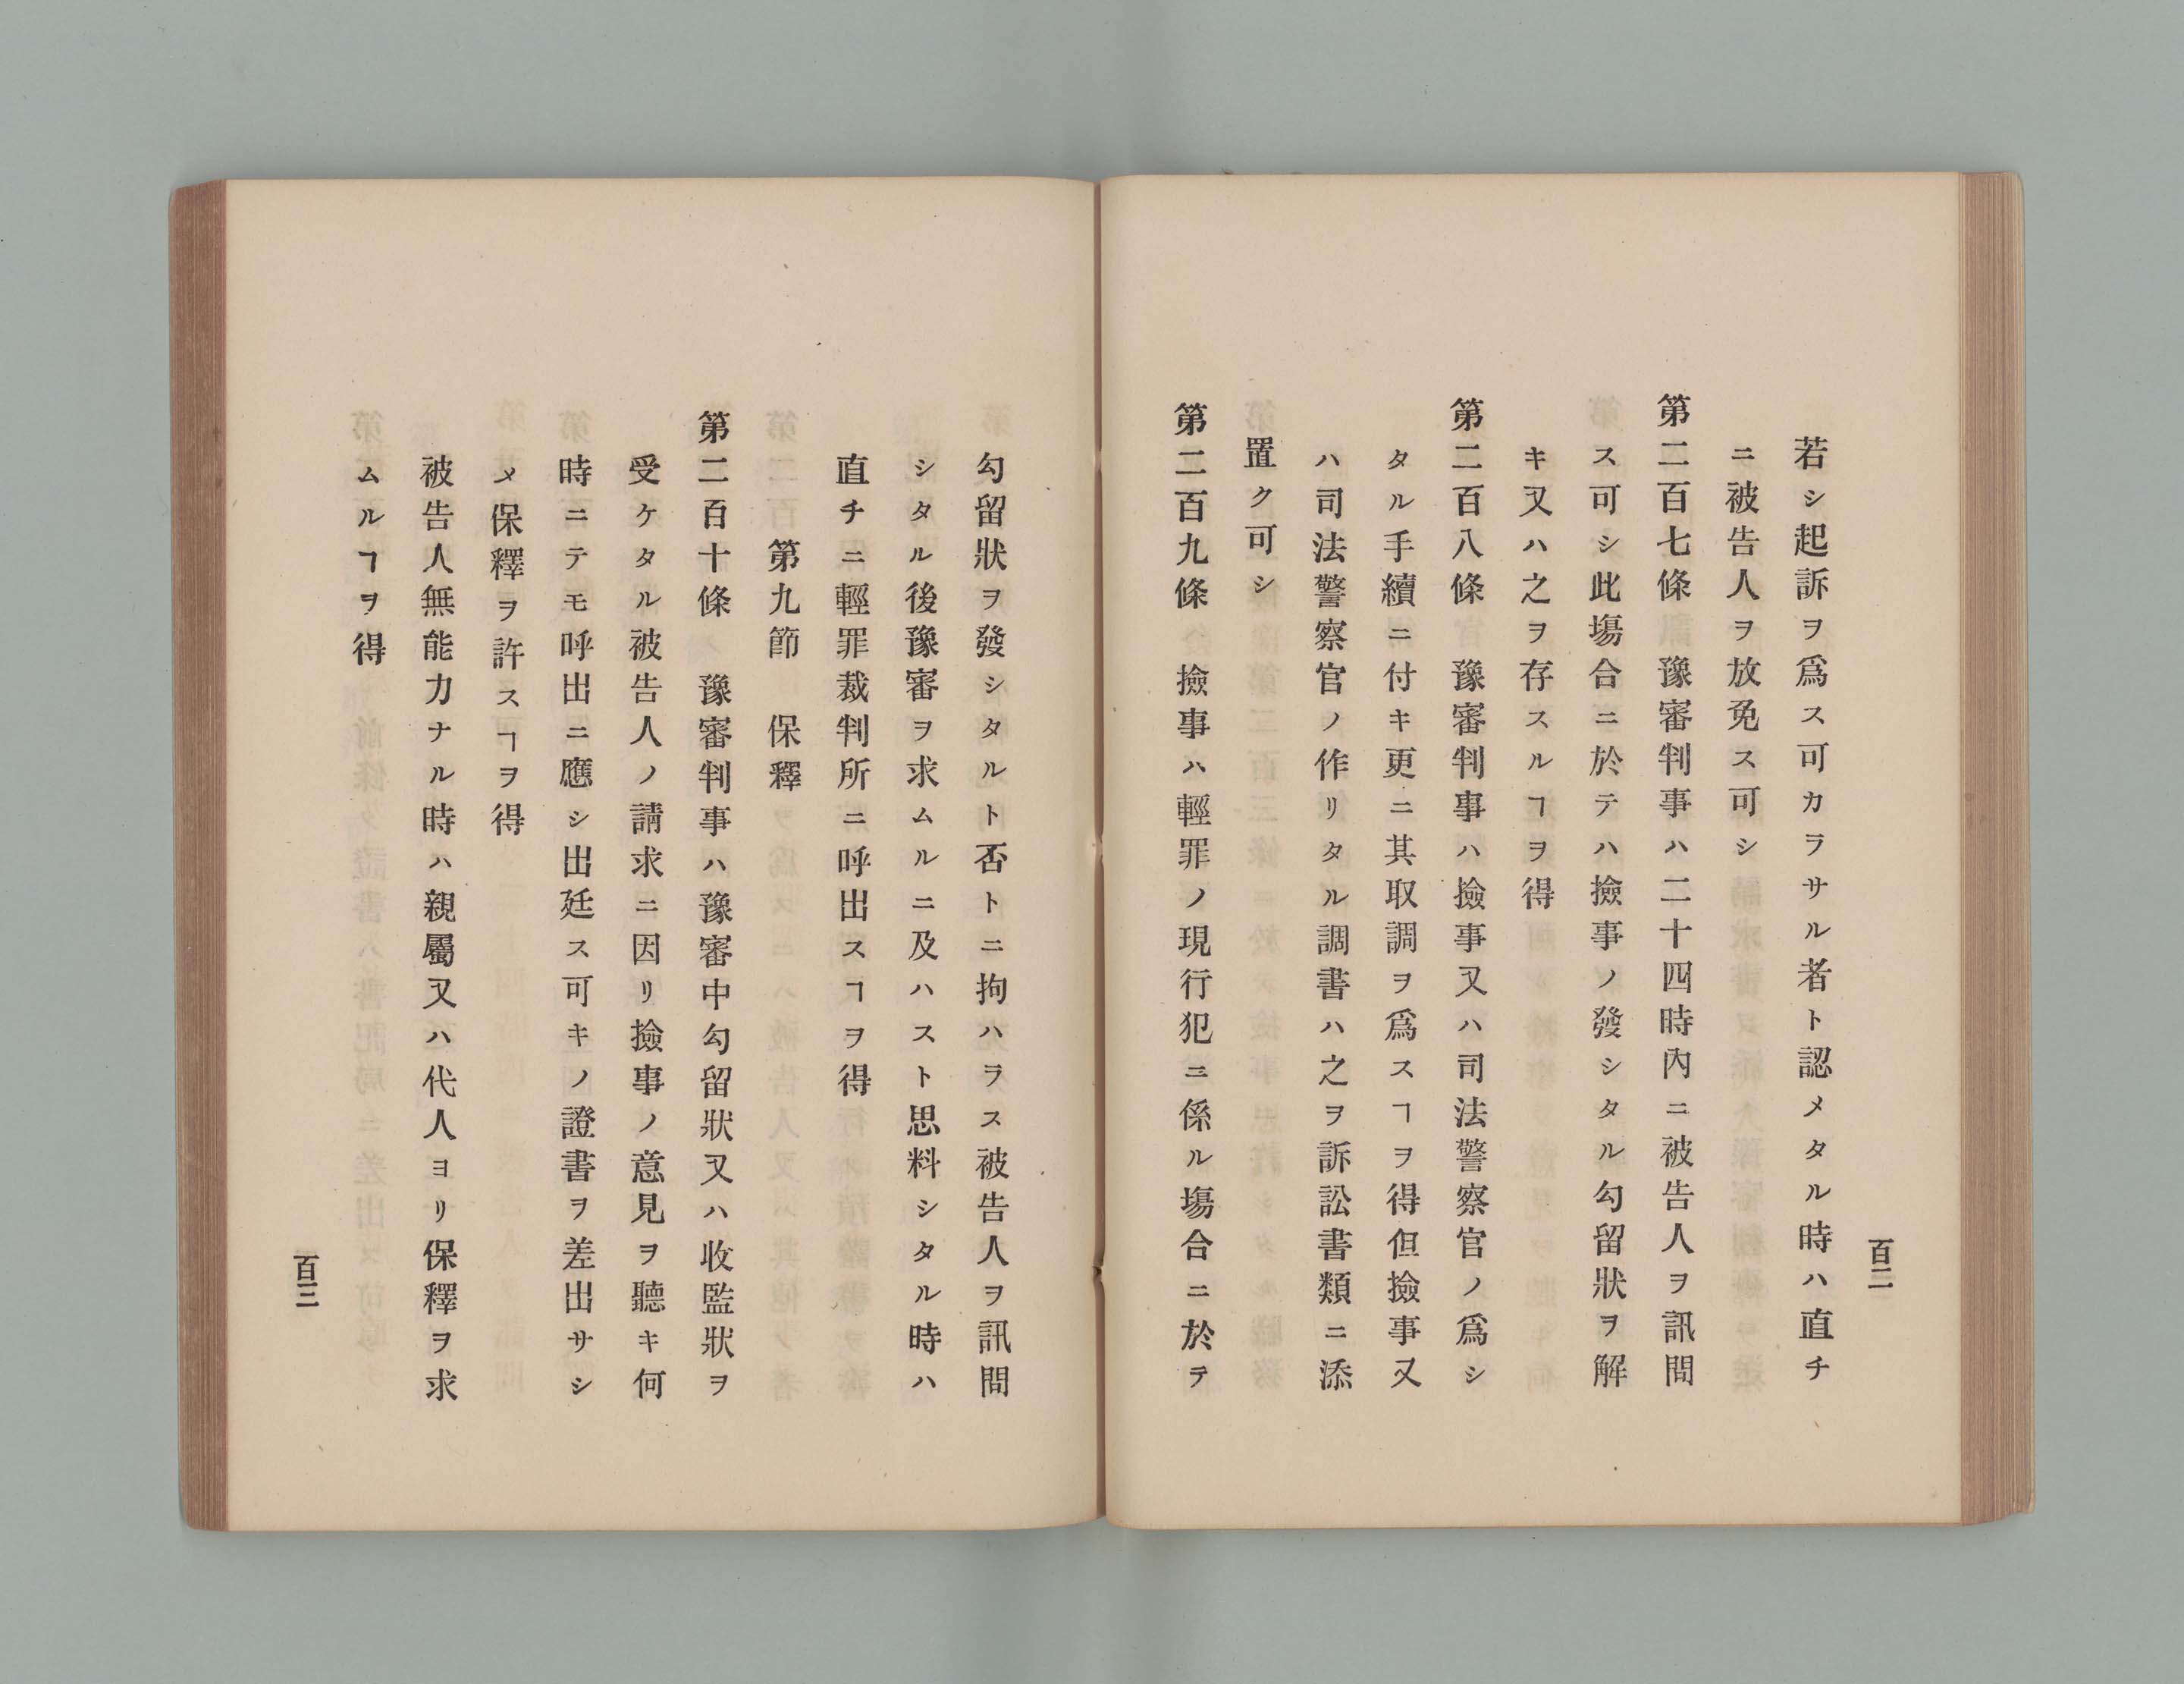 若シ起訴ヲ爲ス可カラサル者ト認メタル時ハ直チ
ニ被告人ヲ放免ス可シ
第二百七條　豫審判事ハ二十四時內ニ被告人ヲ訊問
ス可シ此塲合ニ於テハ撿事ノ發シタル勾留狀ヲ解
キ又ハ之ヲ存スルヿヲ得
第二百八條　豫審判事ハ撿事又ハ司法警察官ノ爲シ
タル手續ニ付キ更ニ其取調ヲ爲スヿヲ得但撿事又
ハ司法警察官ノ作リタル調書ハ之ヲ訴訟書類ニ添
置ク可シ
第二百九條　撿事ハ輕罪ノ現行犯ニ係ル塲合ニ於テ
百二
勾留狀ヲ發シタルト否トニ拘ハラス被告人ヲ訊問
シタル後豫審ヲ求ムルニ及ハスト思料シタル時ハ
直チニ輕罪裁判所ニ呼出スヿヲ得
第九節　保釋
第二百十條　豫審判事ハ豫審中勾留狀又ハ收監狀ヲ
受ケタル被告人ノ請求ニ因リ撿事ノ意見ヲ聽キ何
時ニテモ呼出ニ應シ出廷ス可キノ證書ヲ差出サシ
メ保釋ヲ許スヿヲ得
被告人無能力ナル時ハ親屬又ハ代人ヨリ保釋ヲ求
ムルヿヲ得
百三